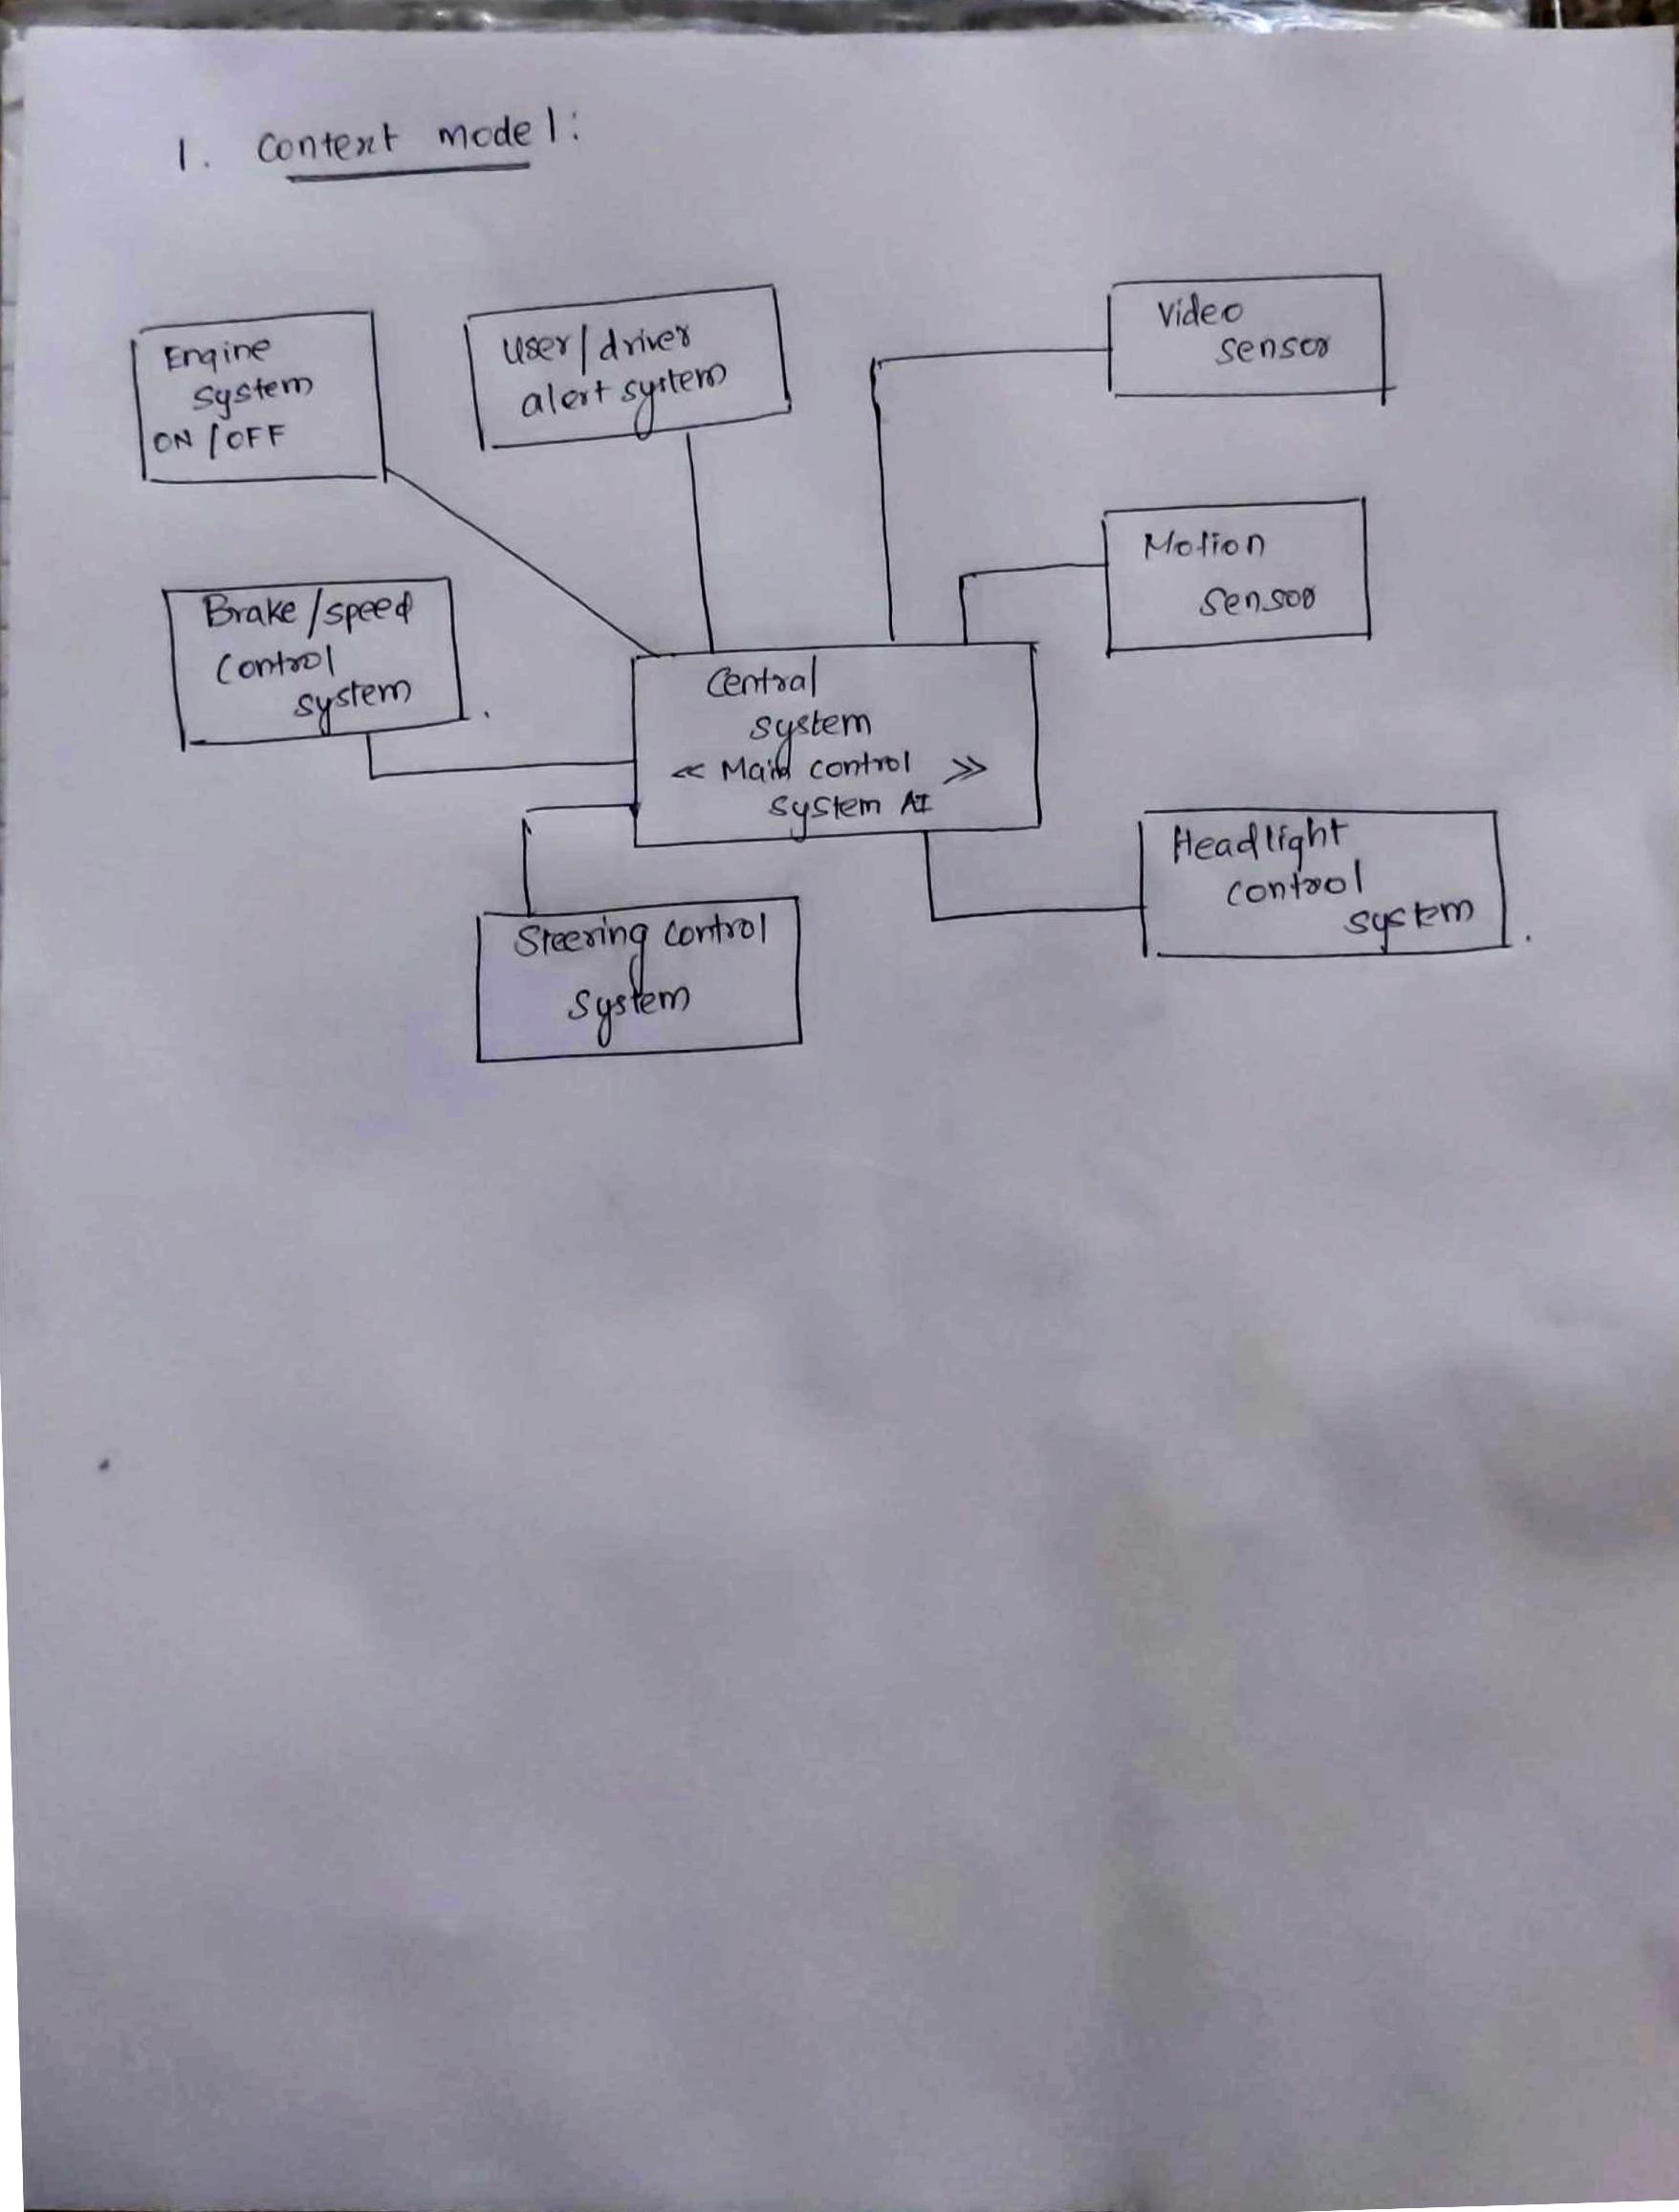 1. Context model:
Engine
system
ON/OFF
User/driver
alert system
Video
sensor
Motion
sensor
Brake/speed
control
system.
Central
system
<< Main control >>
system AI
Headlight
control
system.
Steering control
system